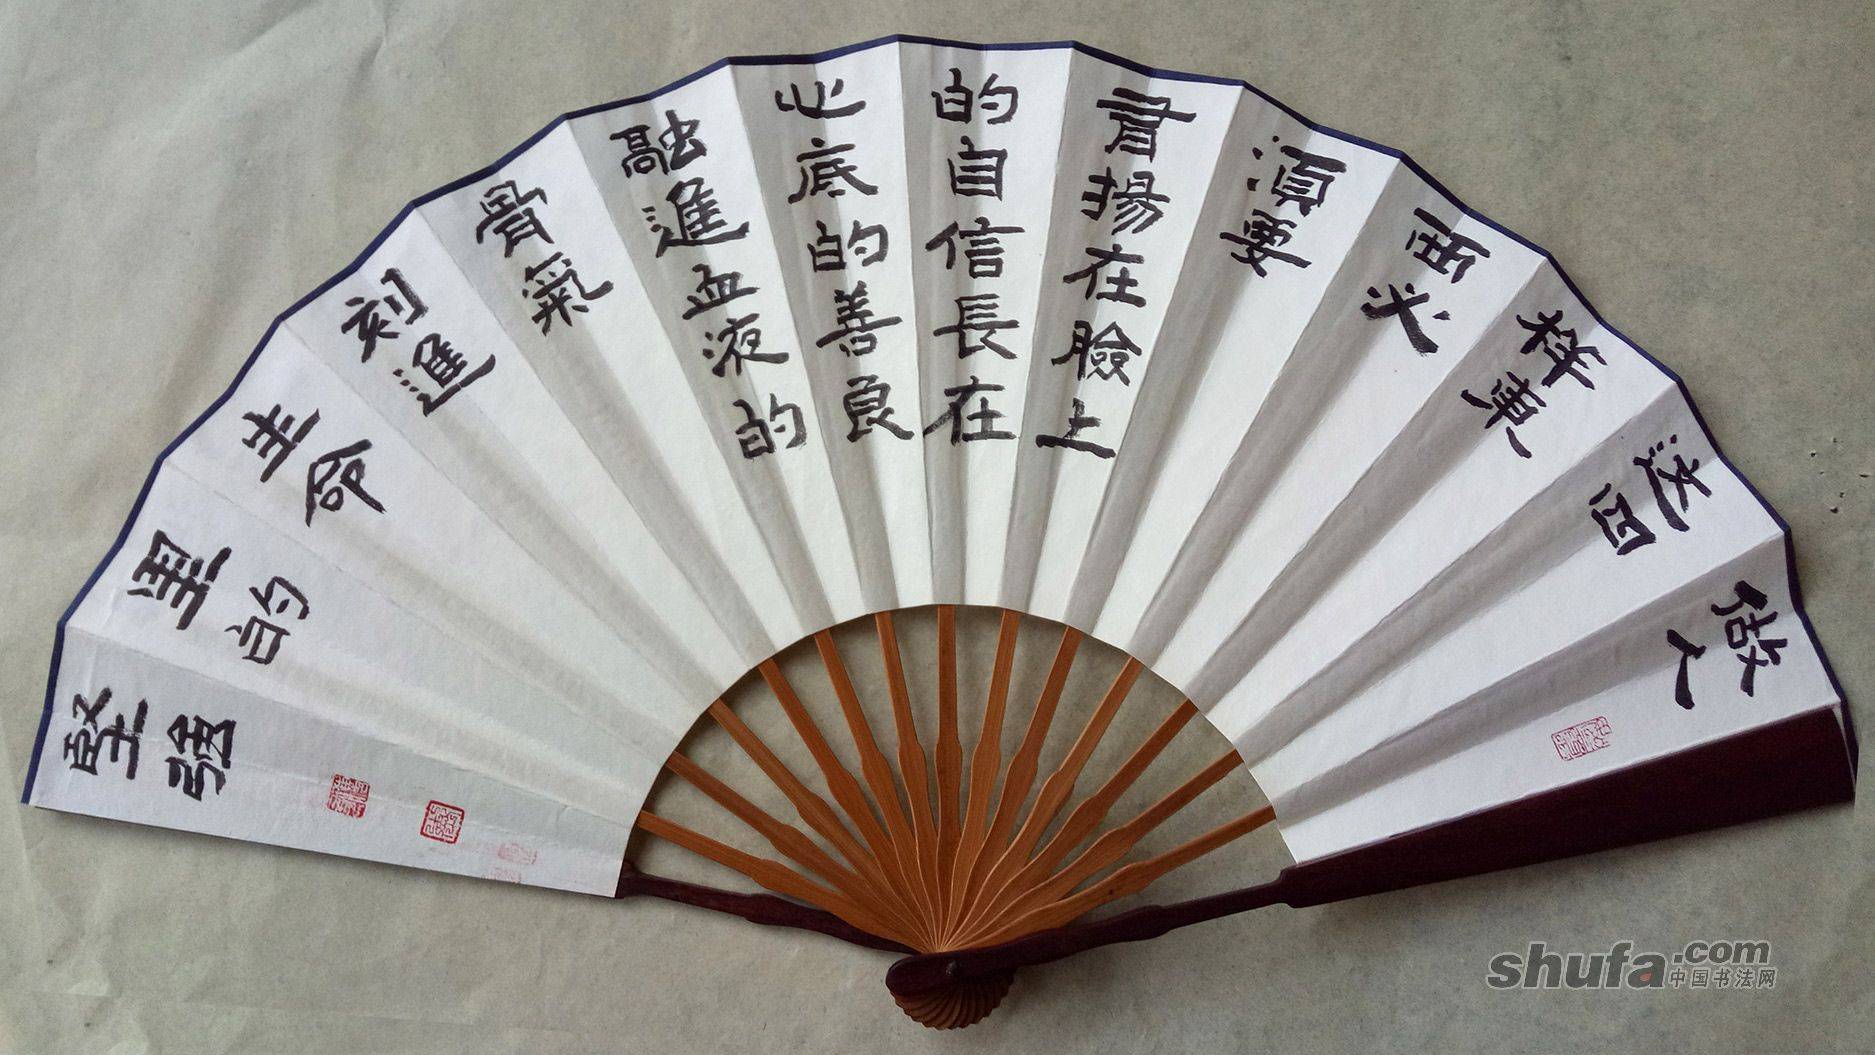 做人
这四
样東
西必
湏要
揚在臉上
的自信長在
心底的善良
融進血液的
骨氣
刻進
生命
里的
堅强
shufa.com
中国书法网